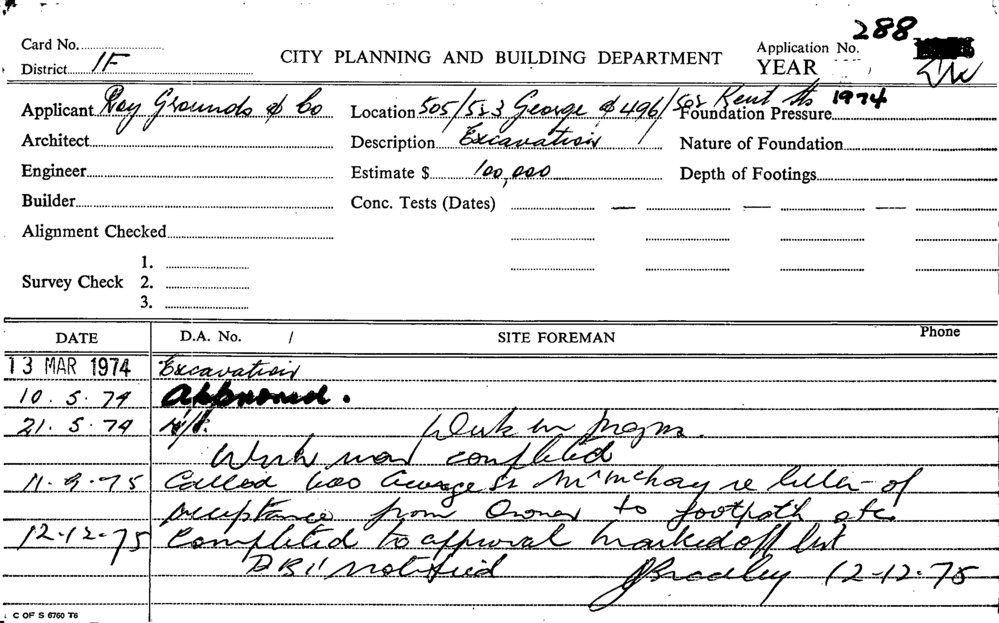 288
Card No. Application No.
CITY PLANNING AND BUILDING DEPARTMENT
District 1F YEAR 1974
Applicant Roy Grounds & Co Location 505/523 George & 496/508 Kent Sts Foundation Pressure
Architect Description Excavation Nature of Foundation
Engineer Estimate $ 100,000 Depth of Footings
Builder Conc. Tests (Dates) — — —
Alignment Checked
1.
Survey Check 2.
3.
DATE D.A. No. / SITE FOREMAN Phone
13 MAR 1974 Excavation
10.5.74 Approved.
21.5.74 Work in progress.
Work now completed
11.9.75 Called 600 George St Mr re letter of
acceptance from Owner to footpath etc
12-12-75 Completed to approval marked off list
DBI notified JBradley 12-12-75
C OF S 6760 T6